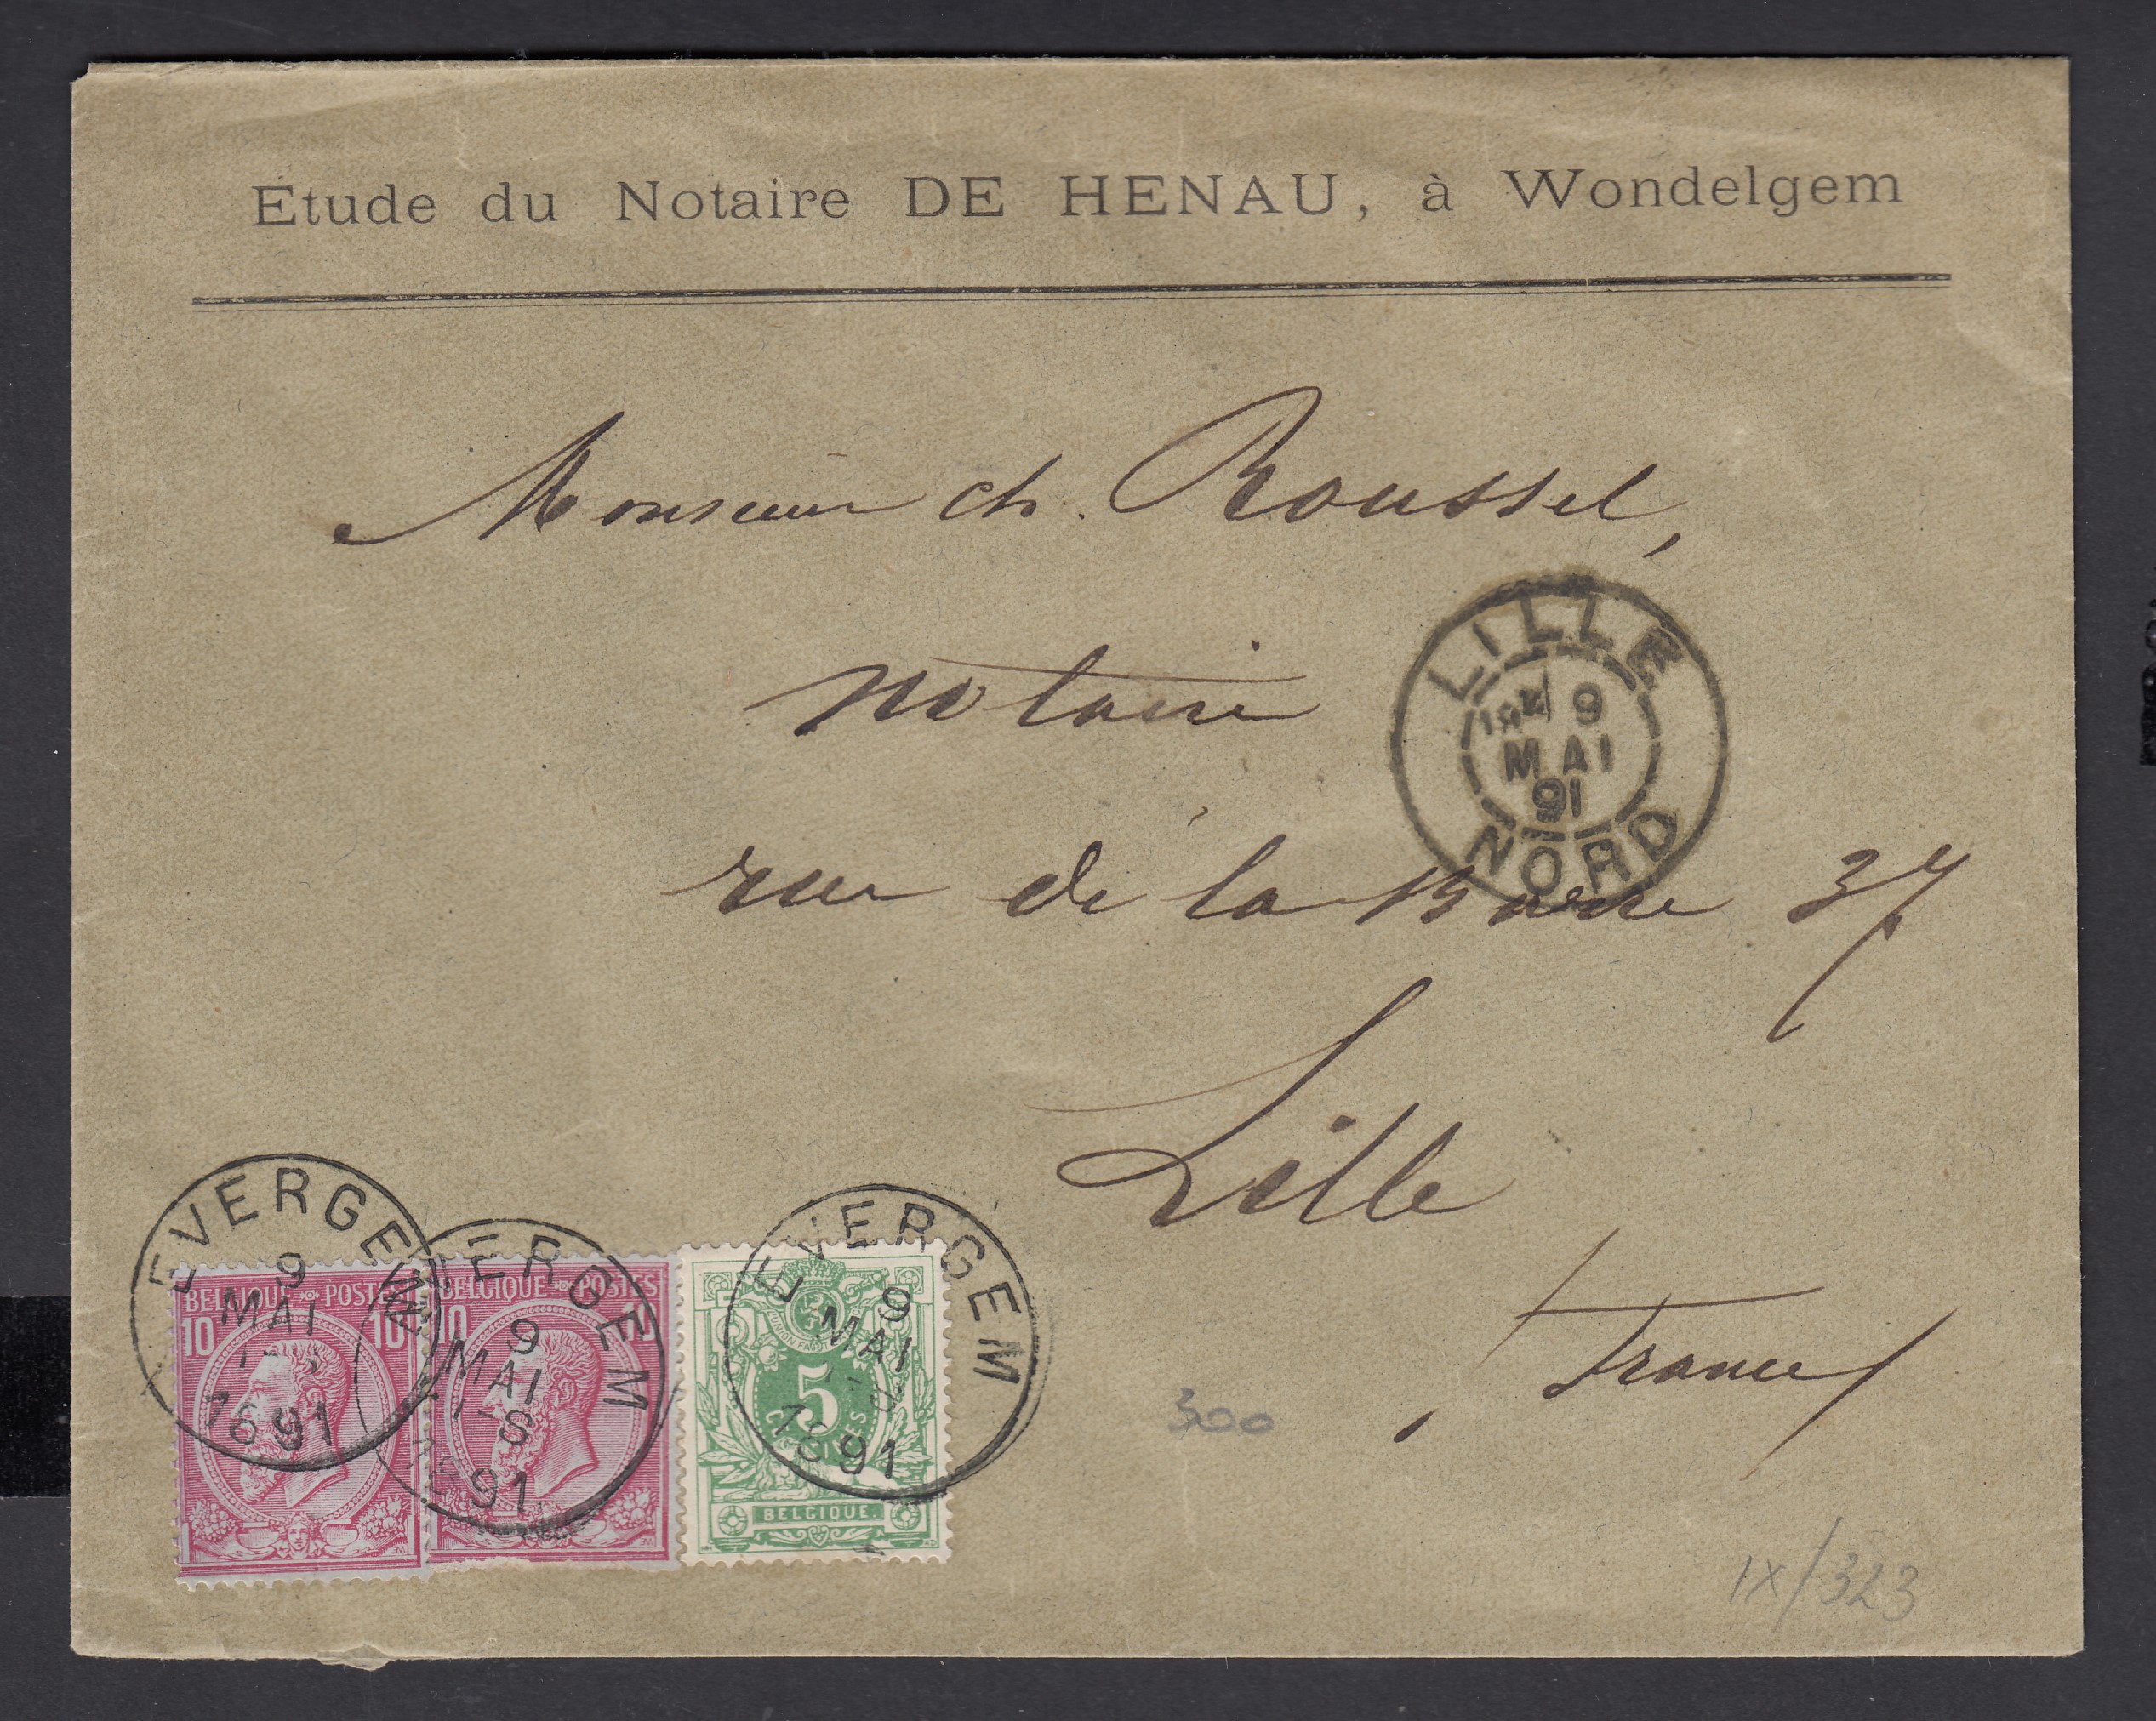 Etude du Notaire DE HENAU, à Wondelgem
Monsieur Ch. Roussel,
notaire
LILLE
9
MAI
91
NORD
rue de la Barre 37
Lille
France
EVERGEM
9
MAI
1891
EVERGEM
9
MAI
1-S
1891
EVERGEM
9
MAI
1891
BELGIQUE POSTES
10 10
BELGIQUE POSTES
10 10
5
CENTIMES
BELGIQUE.
300
IX/323